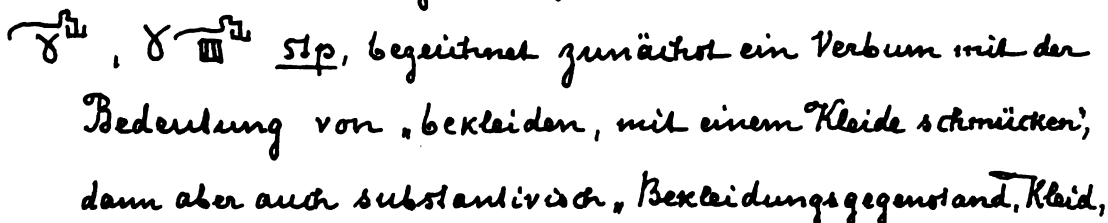 , stp, bezeichnet zunächst ein Verbum mit der
Bedeutung von „bekleiden, mit einem Kleide schmücken“,
dann aber auch substantivisch „Bekleidungsgegenstand, Kleid,